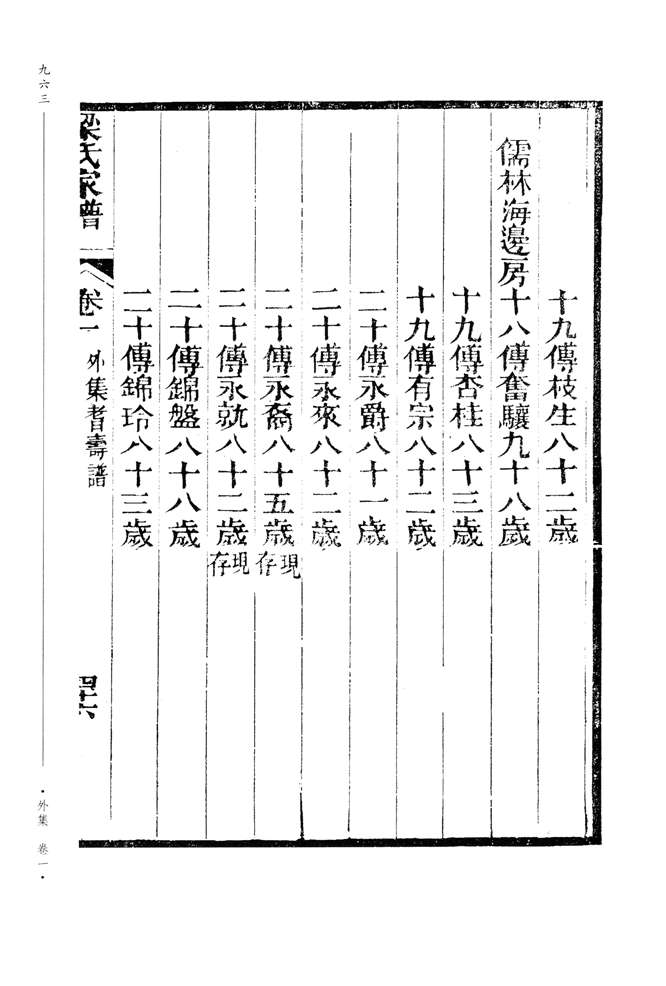 十九傳枝生八十二歲
儒林海邊房十八傳奮驤九十八歲
十九傳杏桂八十三歲
十九傳有宗八十二歲
二十傳永爵八十一歲
二十傳永來八十二歲
二十傳永裔八十五歲現存
二十傳永就八十二歲現存
二十傳錦盤八十八歲
二十傳錦玲八十三歲
梁氏家譜 卷一 外集耆壽譜 四十六
九六三
·外集 卷一·